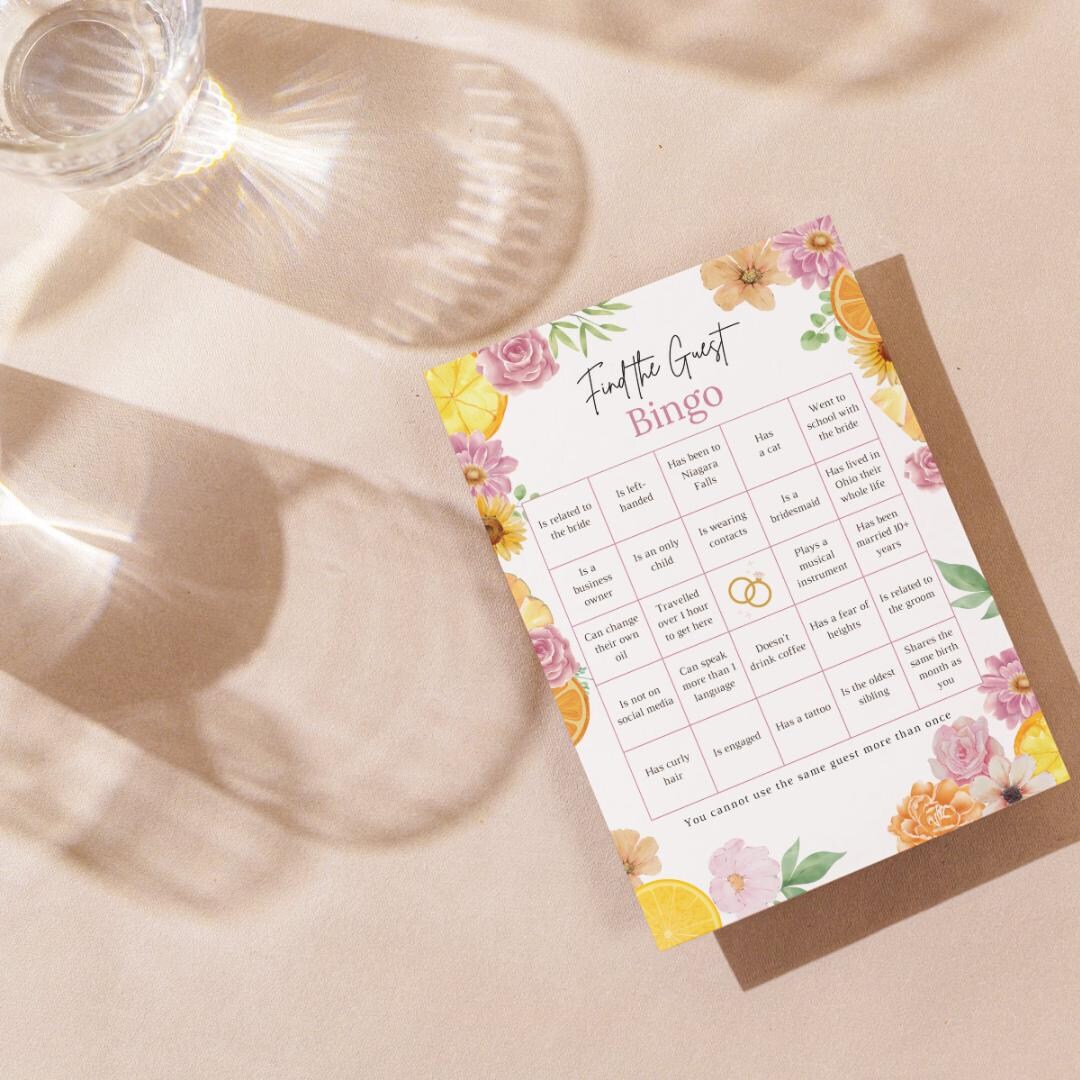 Find the Guest
Bingo
Is related to
the bride
Is left-
handed
Has been to
Niagara
Falls
Has
a cat
Went to
school with
the bride
Is a
business
owner
Is an only
child
Is wearing
contacts
Is a
bridesmaid
Has lived in
Ohio their
whole life
Can change
their own
oil
Travelled
over 1 hour
to get here
Plays a
musical
instrument
Has been
married 10+
years
Is not on
social media
Can speak
more than 1
language
Doesn't
drink coffee
Has a fear of
heights
Is related to
the groom
Has curly
hair
Is engaged
Has a tattoo
Is the oldest
sibling
Shares the
same birth
month as
you
You cannot use the same guest more than once